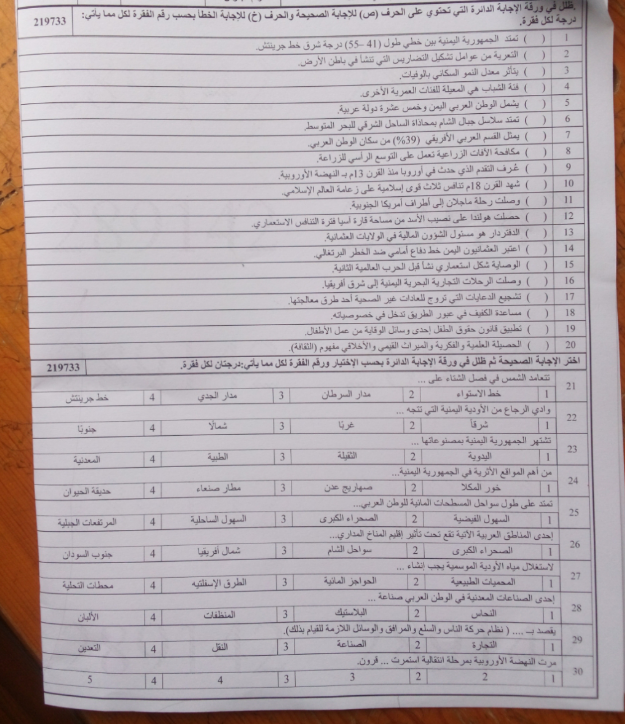 ظلل في ورقة الإجابة الدائرة التي تحتوي على الحرف (ص) للإجابة الصحيحة والحرف (خ) للإجابة الخطأ بحسب رقم الفقرة لكل مما يأتي:
درجة لكل فقرة.
219733
1 ( ) تمتد الجمهورية اليمنية بين خطي طول (41 –55) درجة شرق خط جرينتش.
2 ( ) التعرية من عوامل تشكيل التضاريس التي تنشأ في باطن الأرض.
3 ( ) يتأثر معدل النمو السكاني بالوفيات.
4 ( ) فئة الشباب هي المعيلة للفئات العمرية الأخرى.
5 ( ) يشمل الوطن العربي اليمن وخمس عشرة دولة عربية.
6 ( ) تمتد سلاسل جبال الشام بمحاذاة الساحل الشرقي للبحر المتوسط.
7 ( ) يمثل القسم العربي الأفريقي (39%) من سكان الوطن العربي.
8 ( ) مكافحة الآفات الزراعية تعمل على التوسع الرأسي للزراعة.
9 ( ) عُرف التقدم الذي حدث في أوروبا منذ القرن 13م بـ النهضة الأوروبية.
10 ( ) شهد القرن 18م تنافس ثلاث قوى إسلامية على زعامة العالم الإسلامي.
11 ( ) وصلت رحلة ماجلان إلى أطراف أمريكا الجنوبية.
12 ( ) حصلت هولندا على نصيب الأسد من مساحة قارة آسيا فترة التنافس الاستعماري.
13 ( ) الدفتردار هو مسئول الشؤون المالية في الولايات العثمانية.
14 ( ) اعتبر العثمانيون اليمن خط دفاع أمامي ضد الخطر البرتغالي.
15 ( ) الوصاية شكل استعماري نشأ قبل الحرب العالمية الثانية.
16 ( ) وصلت الرحلات التجارية البحرية اليمنية إلى شرق أفريقيا.
17 ( ) تشجيع الدعايات التي تروج للعادات غير الصحية أحد طرق معالجتها.
18 ( ) مساعدة الكفيف في عبور الطريق تدخل في خصوصياته.
19 ( ) تطبيق قانون حقوق الطفل إحدى وسائل الوقاية من عمل الأطفال.
20 ( ) الحصيلة العلمية والفكرية والميراث القيمي والأخلاقي مفهوم (الثقافة).
اختر الإجابة الصحيحة ثم ظلل في ورقة الإجابة الدائرة بحسب الإختيار ورقم الفقرة لكل مما يأتي:درجتان لكل فقرة. 219733
21 تتعامد الشمس في فصل الشتاء على ...
1 خط الاستواء 2 مدار السرطان 3 مدار الجدي 4 خط جرينتش
22 وادي الرجاع من الأودية اليمنية التي تتجه ...
1 شرقاً 2 غربًا 3 شمالًا 4 جنوبًا
23 تشتهر الجمهورية اليمنية بمصنوعاتها ...
1 اليدوية 2 الثقيلة 3 الطبية 4 المعدنية
24 من أهم المواقع الأثرية في الجمهورية اليمنية...
1 خور المكلا 2 صهاريج عدن 3 مطار صنعاء 4 حديقة الحيوان
25 تمتد على طول سواحل المسطحات المائية للوطن العربي...
1 السهول الفيضية 2 الصحراء الكبرى 3 السهول الساحلية 4 المرتفعات الجبلية
26 إحدى المناطق العربية الآتية تقع تحت تأثير إقليم المناخ المداري...
1 الصحراء الكبرى 2 سواحل الشام 3 شمال أفريقيا 4 جنوب السودان
27 لاستغلال مياه الأودية الموسمية يجب إنشاء ...
1 المحميات الطبيعية 2 الحواجز المائية 3 الطرق الإسفلتيه 4 محطات التحلية
28 إحدى الصناعات المعدنية في الوطن العربي صناعة ...
1 النحاس 2 البلاستيك 3 المنظفات 4 الألبان
29 يقصد بـ .... ( نظام حركة الناس والسلع والمرافق والوسائل اللازمة للقيام بذلك).
1 التجارة 2 الصناعة 3 النقل 4 التعدين
30 مرت النهضة الأوروبية بمرحلة انتقالية استمرت ... قرون.
1 2 2 3 3 4 4 5